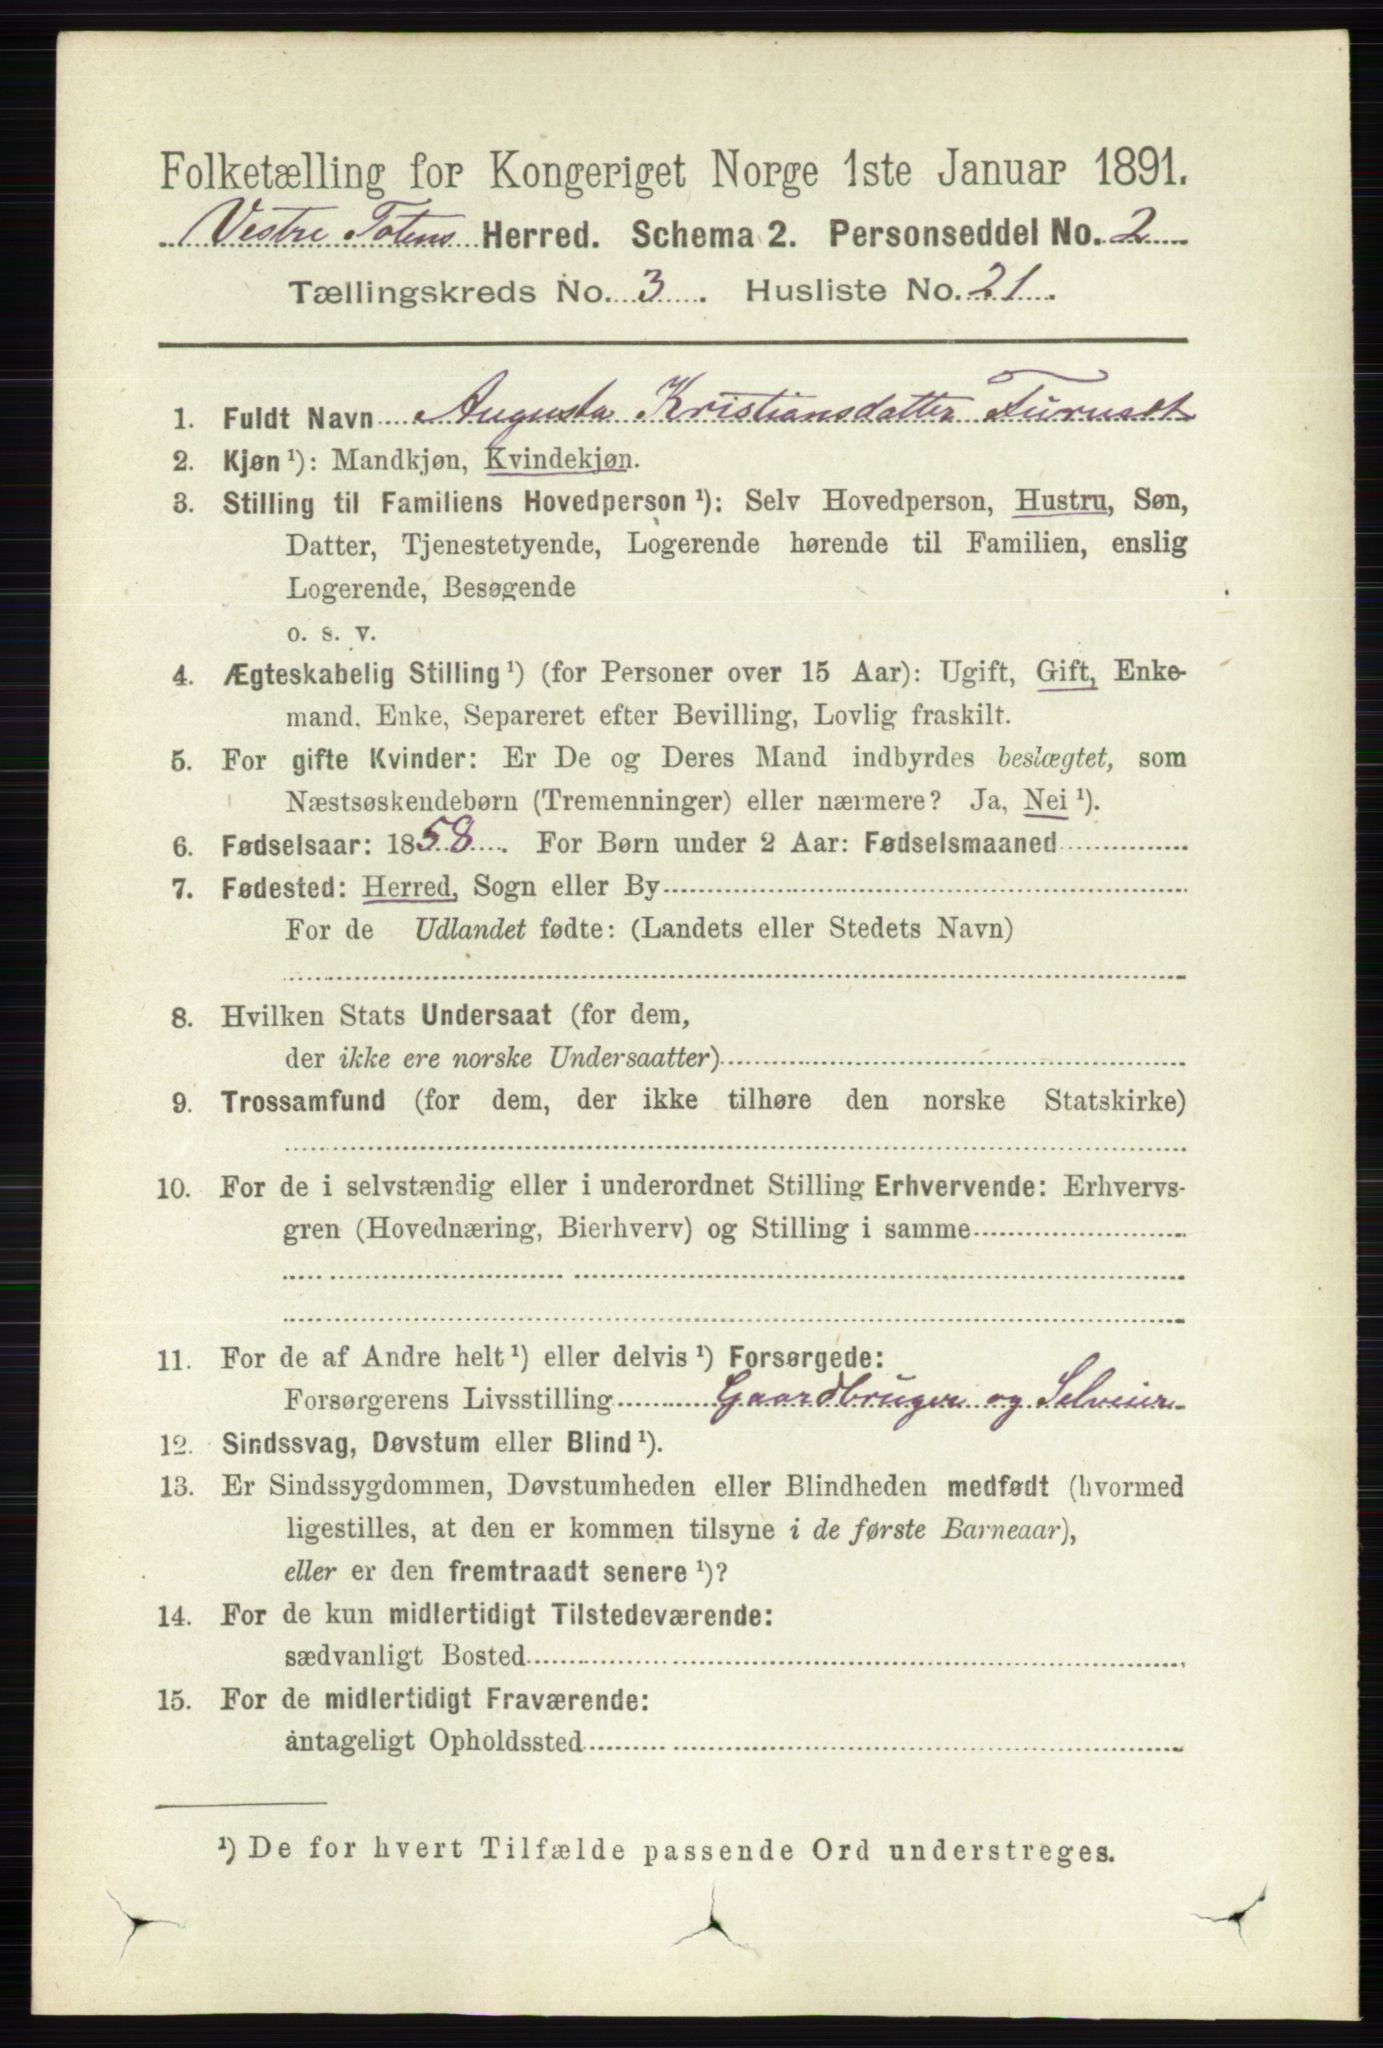 Folketælling for Kongeriget Norge 1ste Januar 1891.
Vestre Totens Herred. Schema 2. Personseddel No. 2
Tællingskreds No. 3. Husliste No. 21.
1. Fuldt Navn Augusta Kristiansdatter Furuset
2. Kjøn ¹): Mandkjøn, Kvindekjøn.
3. Stilling til Familiens Hovedperson ¹): Selv Hovedperson, Hustru, Søn,
Datter, Tjenestetyende, Logerende hørende til Familien, enslig
Logerende, Besøgende
o. s. v.
4. Ægteskabelig Stilling ¹) (for Personer over 15 Aar): Ugift, Gift, Enke-
mand, Enke, Separeret efter Bevilling, Lovlig fraskilt.
5. For gifte Kvinder: Er De og Deres Mand indbyrdes beslægtet, som
Næstsøskendebørn (Tremenninger) eller nærmere? Ja, Nei ¹).
6. Fødselsaar: 1858. For Børn under 2 Aar: Fødselsmaaned
7. Fødested: Herred, Sogn eller By
For de Udlandet fødte: (Landets eller Stedets Navn)
8. Hvilken Stats Undersaat (for dem,
der ikke ere norske Undersaatter)
9. Trossamfund (for dem, der ikke tilhøre den norske Statskirke)
10. For de i selvstændig eller i underordnet Stilling Erhvervende: Erhvervs-
gren (Hovednæring, Bierhverv) og Stilling i samme
11. For de af Andre helt ¹) eller delvis ¹) Forsørgede:
Forsørgerens Livsstilling Gaardbruger og Selveier
12. Sindssvag, Døvstum eller Blind ¹).
13. Er Sindssygdommen, Døvstumheden eller Blindheden medfødt (hvormed
ligestilles, at den er kommen tilsyne i de første Barneaar),
eller er den fremtraadt senere ¹)?
14. For de kun midlertidigt Tilstedeværende:
sædvanligt Bosted
15. For de midlertidigt Fraværende:
antageligt Opholdssted
¹) De for hvert Tilfælde passende Ord understreges.